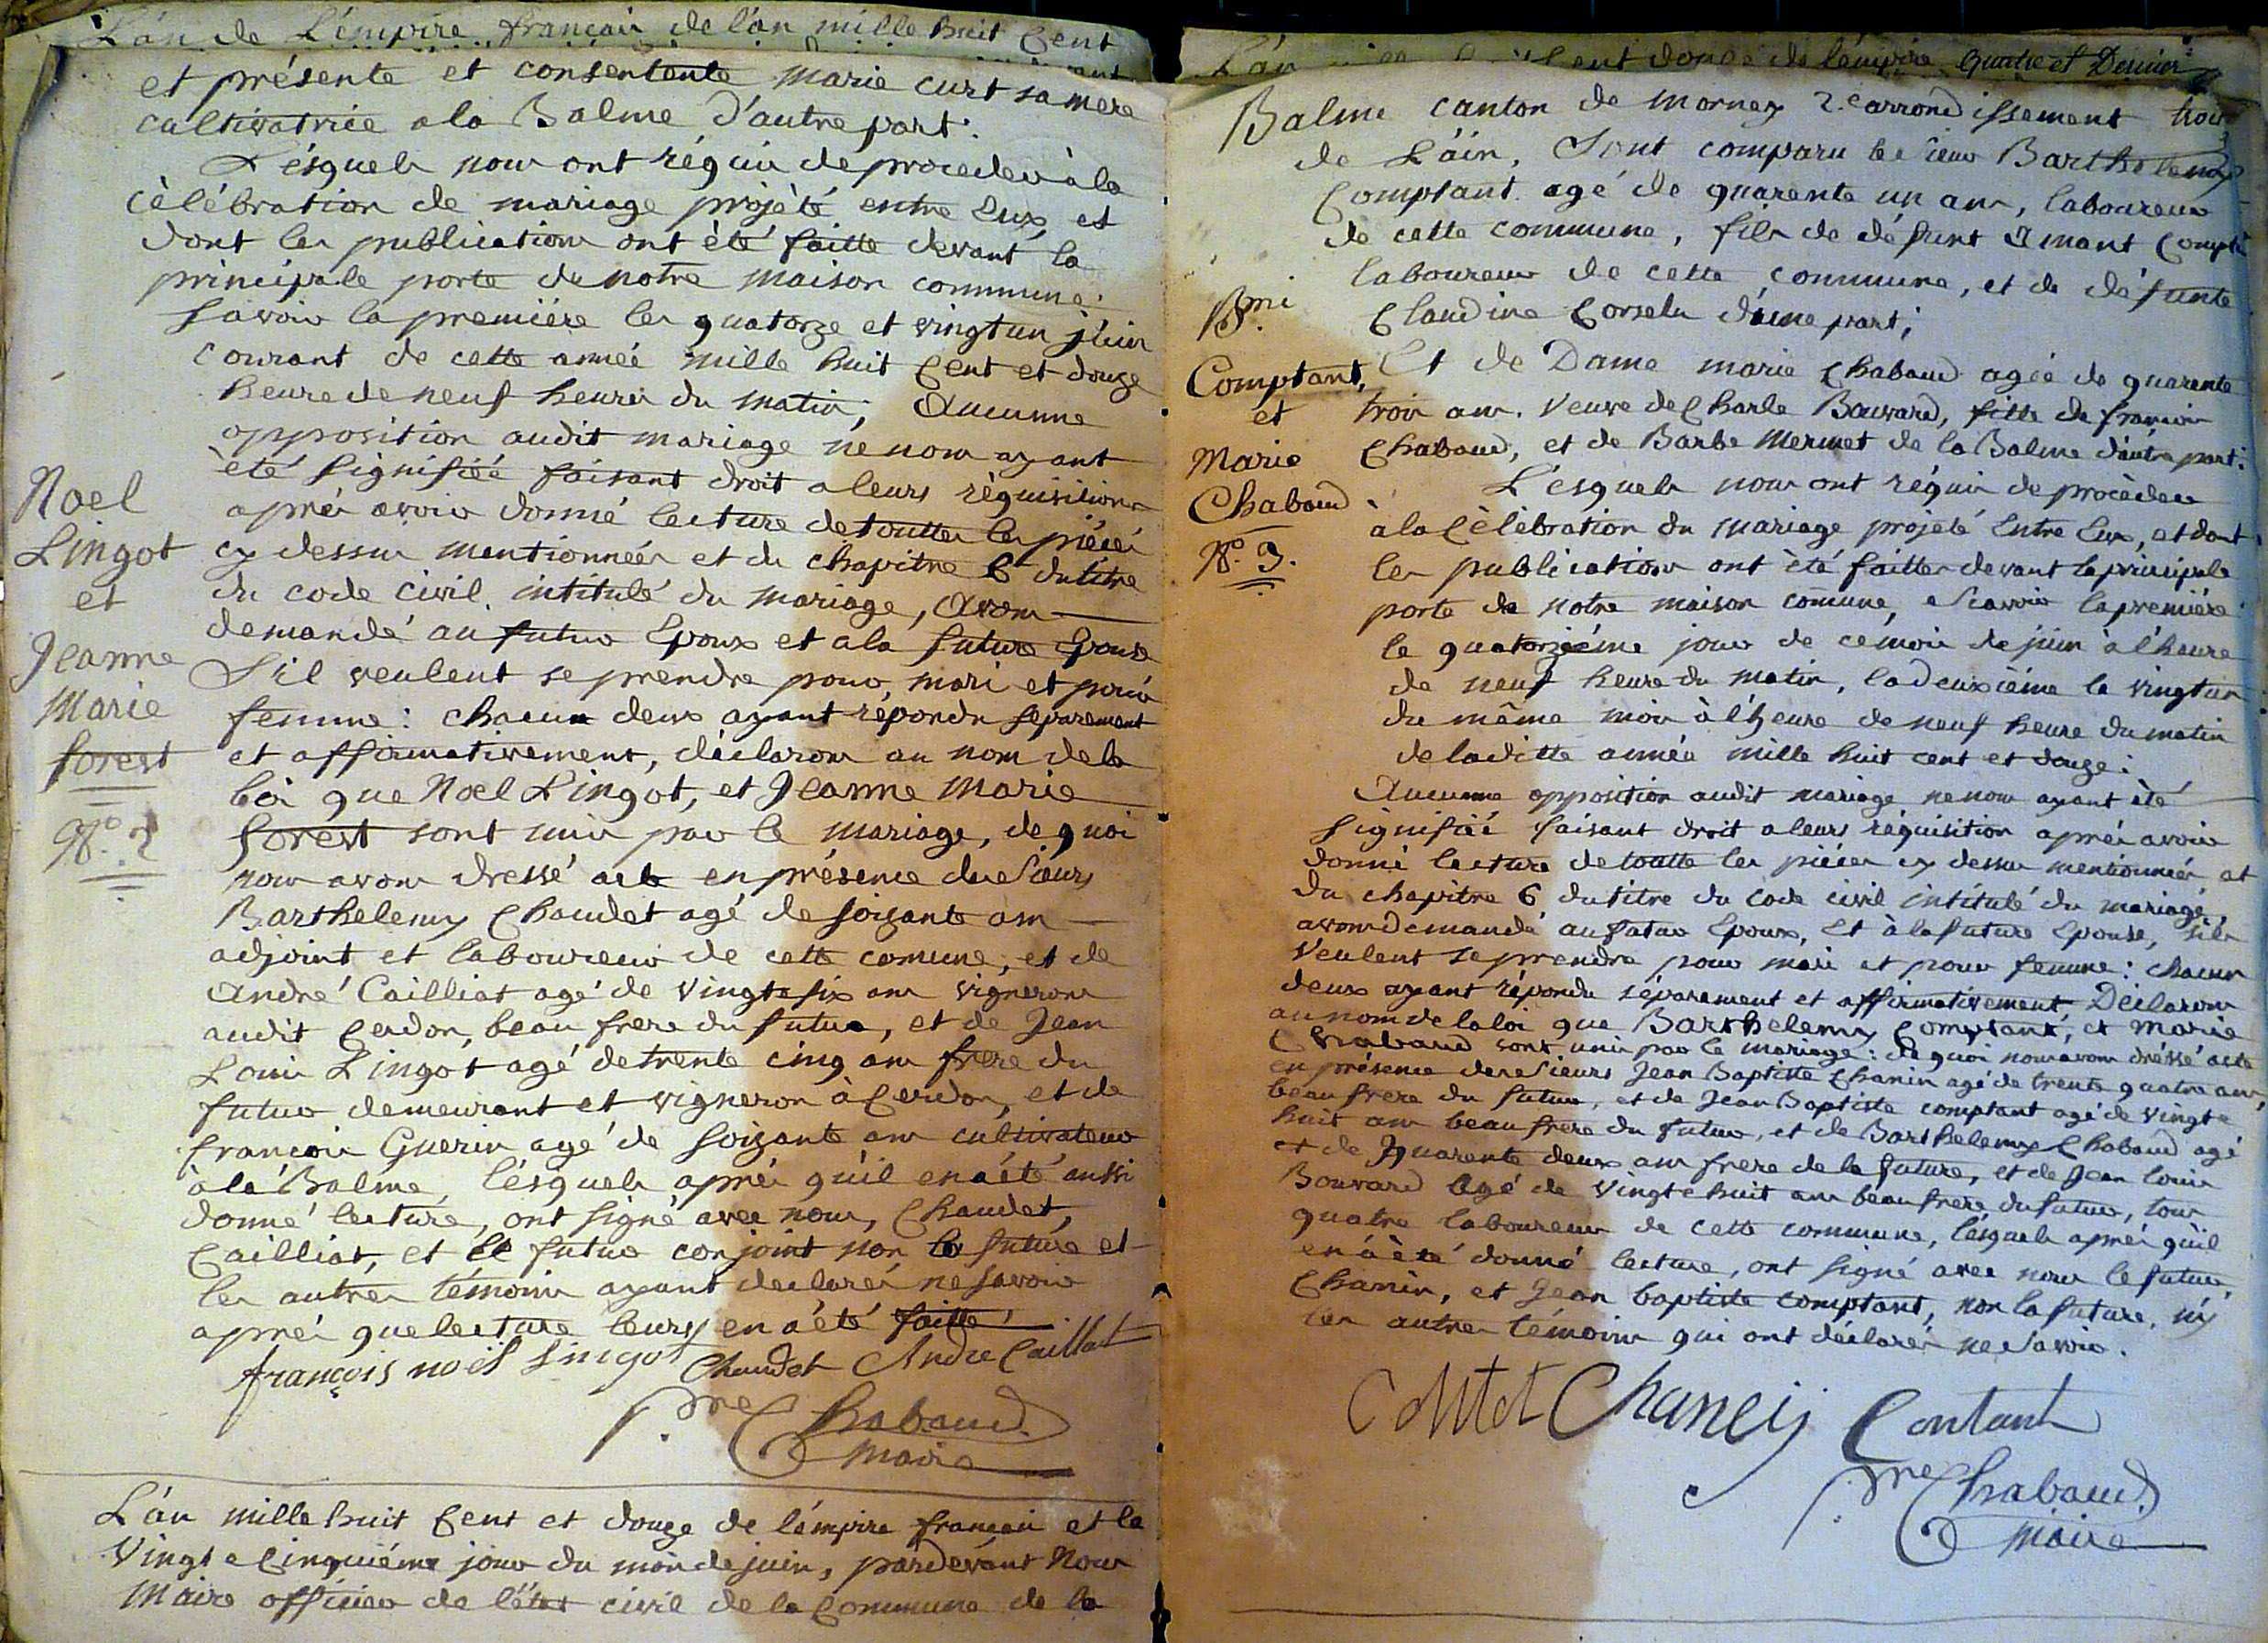 L'án de L'émpire françain de l'an mille huit Cent
et présente et consentente marie curt sa mere
cultivatrice a la Balme d'autre part.
Lésquels nous ont réquis de proceder à la
cèlébration de mariage projèté entre Eux, et
dont les publications ont été faitte devant la
principale porte de notre maison commune.
Savoir la premiére les quatorze et vingtun juin
courant de cette année mille huit Cent et douze
heure de neuf heures du matin; Aucunne
opposition audit mariage ne nous ayant
èté signifiée faisant droit a leurs rèquisitions
aprés avoir donné lecture de toutte les piéces
cy dessus mentionnées et du chapitre 6 du titre
du code civil intitulé du mariage, Avons
demandé au futur Epoux et a la future Epouse
S'il veulent se prendre pour mari et pour
femme: chacun deux ayant répondu séparement
et affirmativement, déclarons au nom de la
loi que Noel Lingot, et Jeanne Marie
forest sont unis par le mariage, de quoi
nous avons dressé acte en présence des Sieurs
Barthelemy Chaudet agé de soixante ans
adjoint et laboureur de cette comune, et de
André Cailliat agé de vingt six ans vignerons
audit Cerdon, beau frere du futur, et de Jean
Louis Lingot agé de trente cinq ans frere du
futur demeurant et vigneron à Cerdon, et de
françois Guerin agé de soixante ans cultivateur
à la Balme, lésquels aprés qu'il en a été aussi
donné lecture, ont signé avec nous, Chaudet,
Cailliat, et le futur conjoint non la future et
les autres témoins ayant declarés ne savoir
aprés que lecture leurs en a été faitte
françois noël Lingot Chaudet Andre Caillat
Chabaud
Maire
Noel
Lingot
et
Jeanne
Marie
forest
N.o 2
L'án mille huit Cent et douze de lémpire françain et le
Vingt e Cinquiéme jour du mois de juin, pardevant Nous
Maire officier de l'état civil de la Commune de la
L'án mille huit Cent douze de lémpire Quatre et Dernier
Balme canton de mornay 2.e arrondissement trois
de L'áin, Sont comparu le sieur Barthelemy
Comptant agé de quarente un ans, laboureur
de cette commune, fils de défunt Amant Compt
laboureur de cette commune, et de défunte
Claudine Corselu d'une part;
Et de Dame marie Chabaud agée de quarente
trois ans. Veuve de Charle Bouvard, fille de francois
Chabaud, et de Barbe Mermet de la Balme d'autre part.
Lésquels nous ont réquis de procèder
à la Cèlèbration du mariage projeté Entre Eux, et dont
les publications ont èté faittes devant la principale
porte de notre maison comune, a Scavoir la premiére
le quatorziéme jour de ce mois de juin à l'heure
de neuf heure du matin, la deuxiéme le vingtun
du même mois à l'heure de neuf heure du matin
de laditte année mille huit cent et douze:
Aucunne opposition audit mariage ne nous ayant été
signifiée faisant droit a leurs réquisition aprés avoir
donné lecture de toutte les piéces cy dessus mentionnées, et
du chapitre 6 du titre du code civil intitulé du mariage,
avons demandé au futur Epoux, Et à la future Epouse, sils
Veulent se prendre pour mari et pour femme: chacun
deux ayant répondu séparement et affirmativement, Déclarons
au nom de la loi que Barthelemy Comptant, et Marie
Chabaud sont unis par le mariage: de quoi nous avons dréssé acte
en présence des Sieurs Jean Baptiste Chanin agé de trente quatre ans,
beau frere du futur, et de Jean Baptiste comptant agé de vingt e
huit ans beau frere du futur, et de Barthelemy Chabaud agé
et de quarente deux ans frere de la future, et de Jean louis
Bouvard agé de vingt e huit ans beau frere du futur, tous
quatre laboureurs de cette commune, lésquels aprés qu'il
en à été donné lecture, ont signé avec nous le futur,
Chanin, et Jean baptiste comptant, non la future, ny
les autres témoins qui ont déclarés ne savoir.
Contet Chanein Contant
Chabaud
Maire
B.mi
Comptant,
et
Marie
Chabaud
N.o 3.